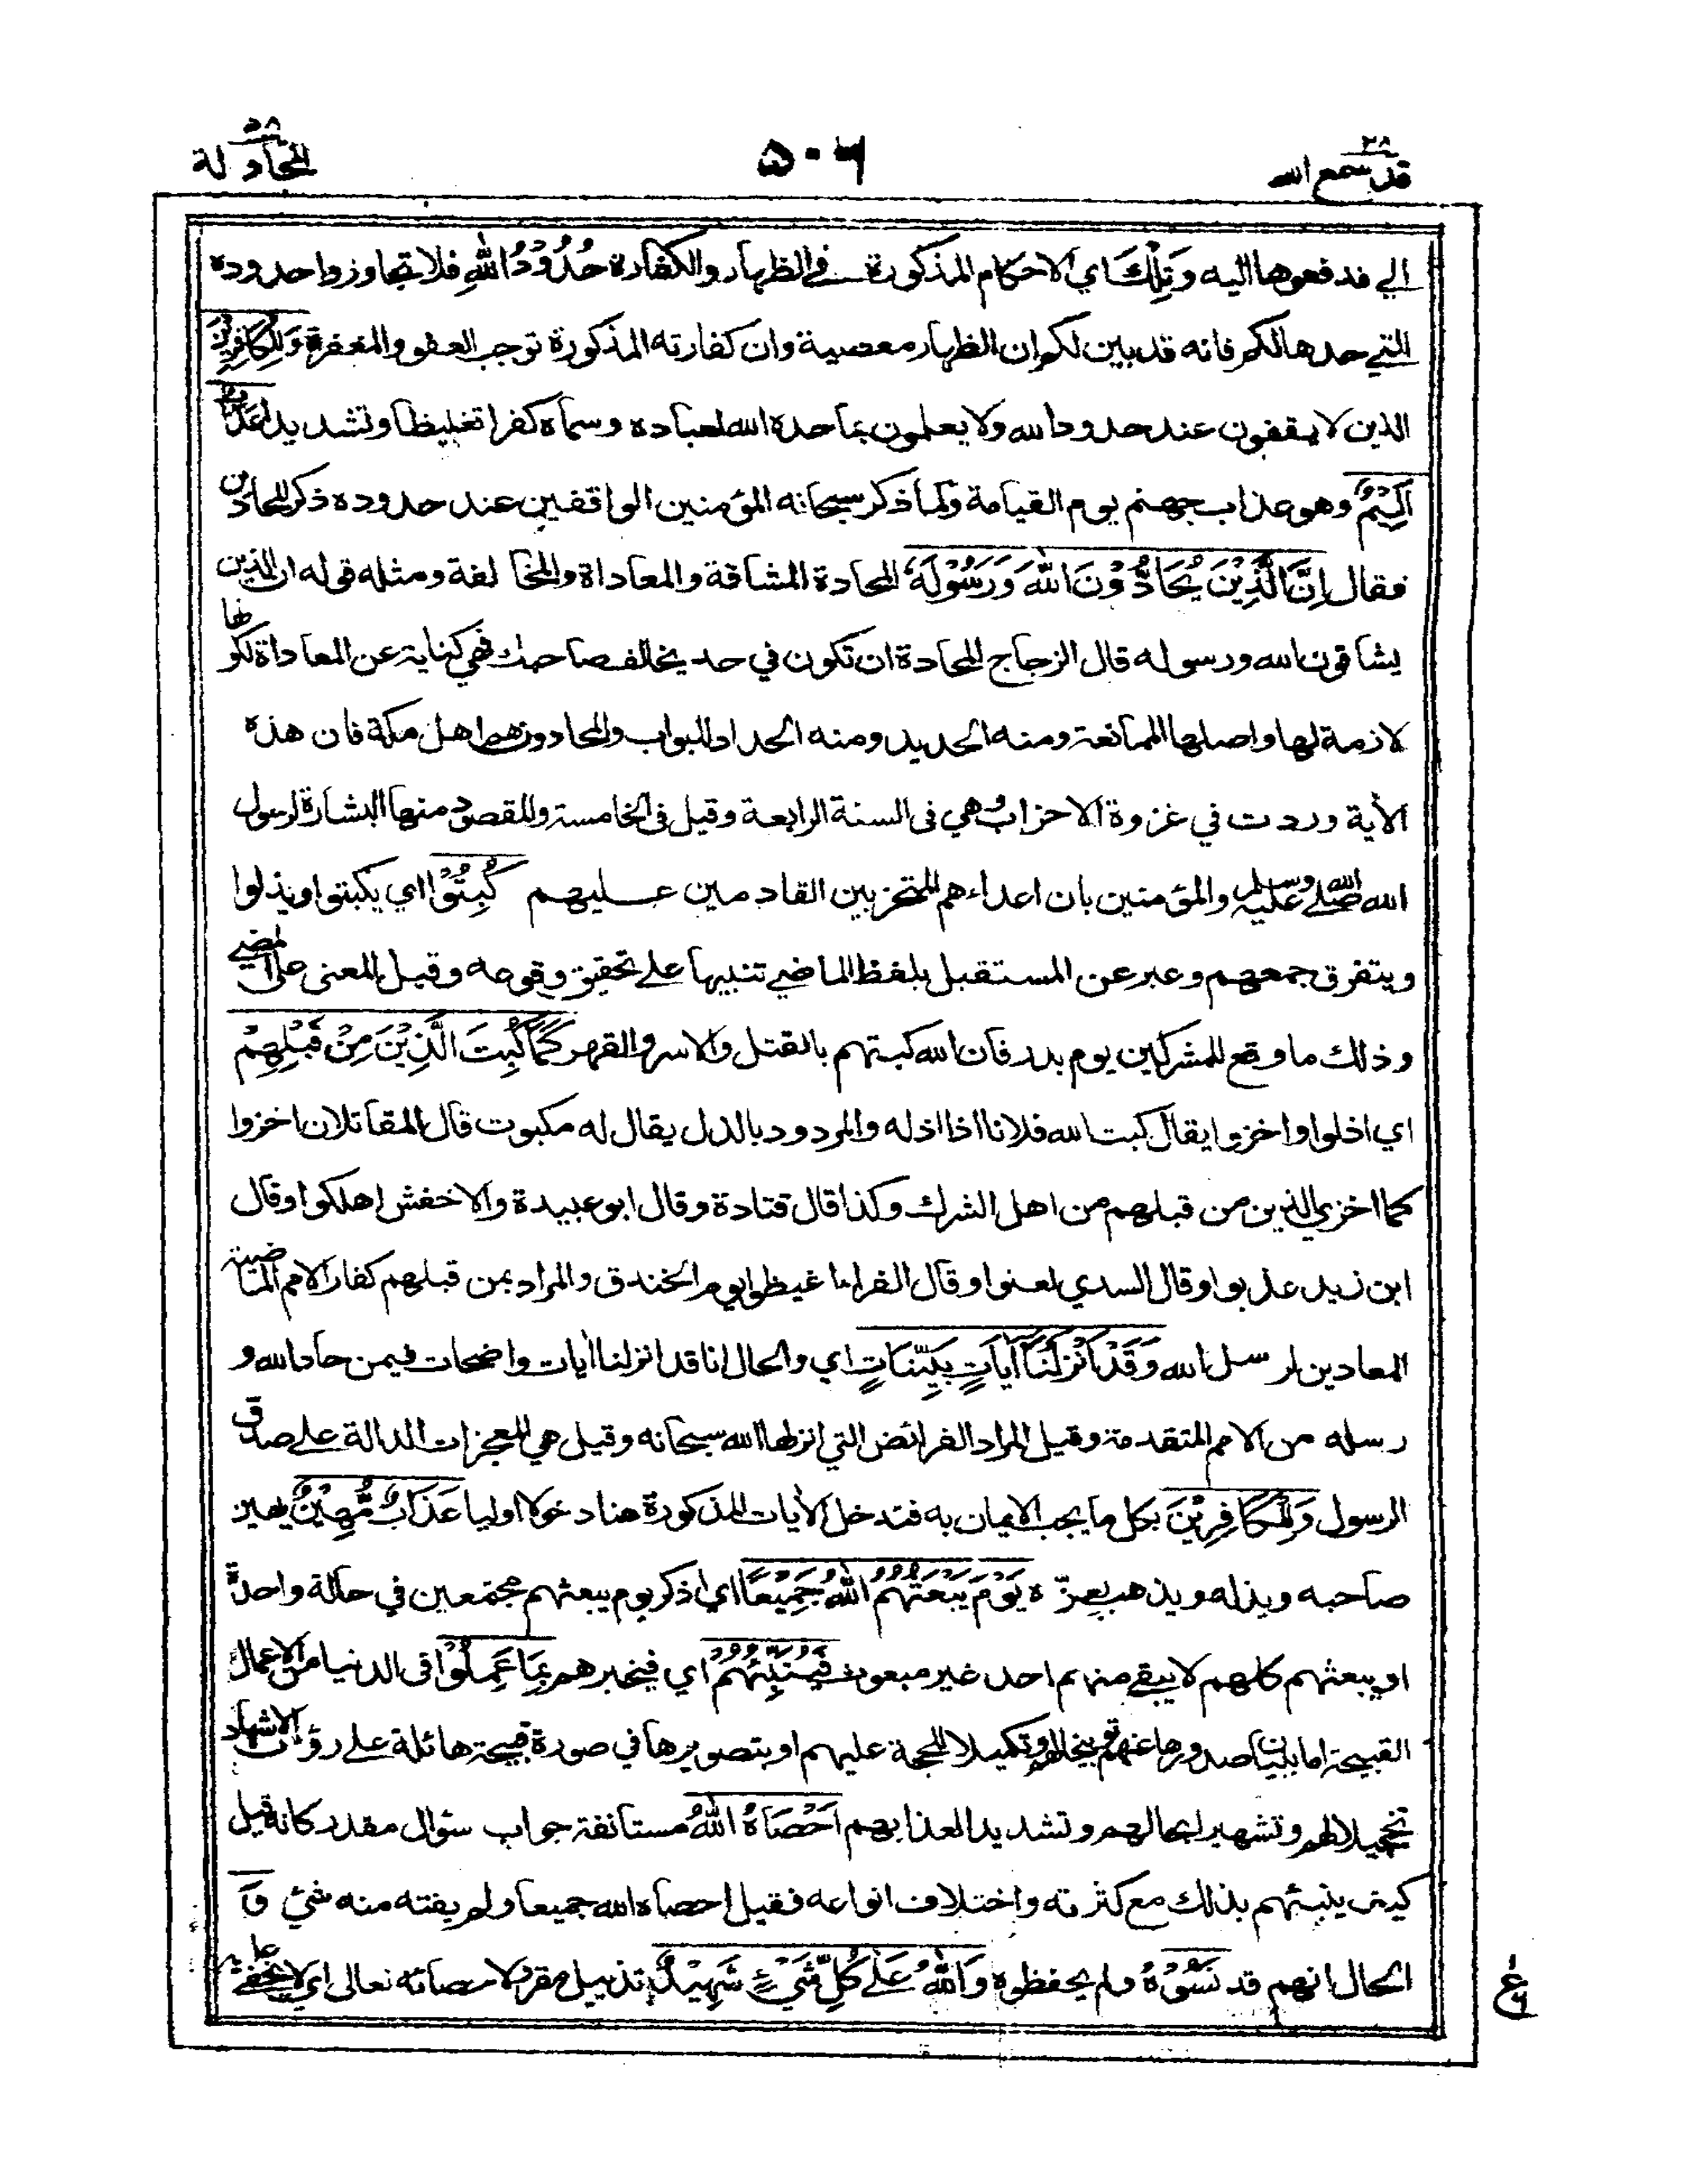 قد سمع الله ٢٨
٥٠٦
المجادلة ٥٨
الي فدفعوها اليه وَتِلْكَ اي الاحكام المذكورة في الظهار والكفارة حُدُوْدُ اللهِ فلا تجاوزوا حدوده
التي حدها لكم فانه قد بين لكم ان الظهار معصية وان كفارته المذكورة توجب العفو والمغفرة وَلِلْكَافِرِيْنَ
الذين لا يقفون عند حدود الله ولا يعلمون بما حده الله لعباده وسماه كفرا تغليظا وتشديدا عَذَابٌ
اَلِيْمٌ وهو عذاب جهنم يوم القيامة ولما ذكر سبحانه المؤمنين الواقفين عند حدوده ذكر المحادين
فقال اِنَّ الَّذِيْنَ يُحَادُّوْنَ اللهَ وَرَسُوْلَهٗ المحادة المشاقة والمعاداة والمخالفة ومثله قوله ان الذين
يشاقون الله ورسوله قال الزجاج المحادة ان تكون في حد يخالف صاحبك فهي كناية عن المعاداة لكونها
لازمة لها واصلها الممانعة ومنه الحديد ومنه الحداد للبواب والمحادون هم اهل مكة فان هذه
الأية وردت في غزوة الاحزاب وهي في السنة الرابعة وقيل في الخامسة والمقصود منها البشارة لرسول
الله صلى الله عليه وسلم والمؤمنين بان اعداءهم المتحزبين القادمين عليهم كُبِتُوْا اي يكبتوا ويذلوا
ويتفرق جمعهم وعبر عن المستقبل بلفظ الماضي تنبيها على تحقيق وقوعه وقيل المعنى على المضي
وذلك ما وقع للمشركين يوم بدر فان الله كبتهم بالقتل والاسر والقهر كَمَا كُبِتَ الَّذِيْنَ مِنْ قَبْلِهِمْ
اي اذلوا واخزوا يقال كبت الله فلانا اذا اذله والمردود بالذل يقال له مكبوت قال المقاتلان اخزوا
كما اخزي الذين من قبلهم من اهل الشرك وكذا قال قتادة وقال ابو عبيدة والاخفش اهلكوا وقال
ابن زيد عذبوا وقال السدي لعنوا وقال الفراء غيظوا يوم الخندق والمراد بمن قبلهم كفار الامم الماضية
المعادين لرسل الله وَقَدْ اَنْزَلْنَا آيَاتٍ بَيِّنَاتٍ اي والحال انا قد انزلنا أيات واضحات فيمن حاد الله و
رسله من الامم المتقدمة وقيل المراد الفرائض التي انزلها الله سبحانه وقيل هي المعجزات الدالة على صدق
الرسول وَلِلْكَافِرِيْنَ بكل ما يجب الايمان به فتدخل الأيات المذكورة هنا دخولا اوليا عَذَابٌ مُّهِيْنٌ يهين
صاحبه ويذله ويذهب بعزّه يَوْمَ يَبْعَثُهُمُ اللهُ جَمِيْعًا اي اذكر يوم يبعثهم مجتمعين في حالة واحدة
او يبعثهم كلهم لا يبقى منهم احد غير مبعوث فَيُنَبِّئُهُمْ اي فيخبرهم بِمَا عَمِلُوْا في الدنيا من الاعمال
القبيحة اما ببيان صدورها عنهم توبيخا لهم وتكميلا للحجة عليهم او بتصويرها في صورة قبيحة هائلة على رؤس الاشهاد
تخجيلا لهم وتشهيرا بحالهم وتشديدا لعذابهم اَحْصَاهُ اللهُ مستانفة جواب سؤال مقدر كانه قيل
كيف ينبئهم بذلك مع كثرته واختلاف انواعه فقيل احصاه الله جميعا ولم يفته منه شيئ وَ
الحال انهم قد نَسُوْهُ ولم يحفظوه وَاللهُ عَلٰى كُلِّ شَيْءٍ شَهِيْدٌ تذييل مقرر لاحصائه تعالى اي لا يخفى عليه
ع